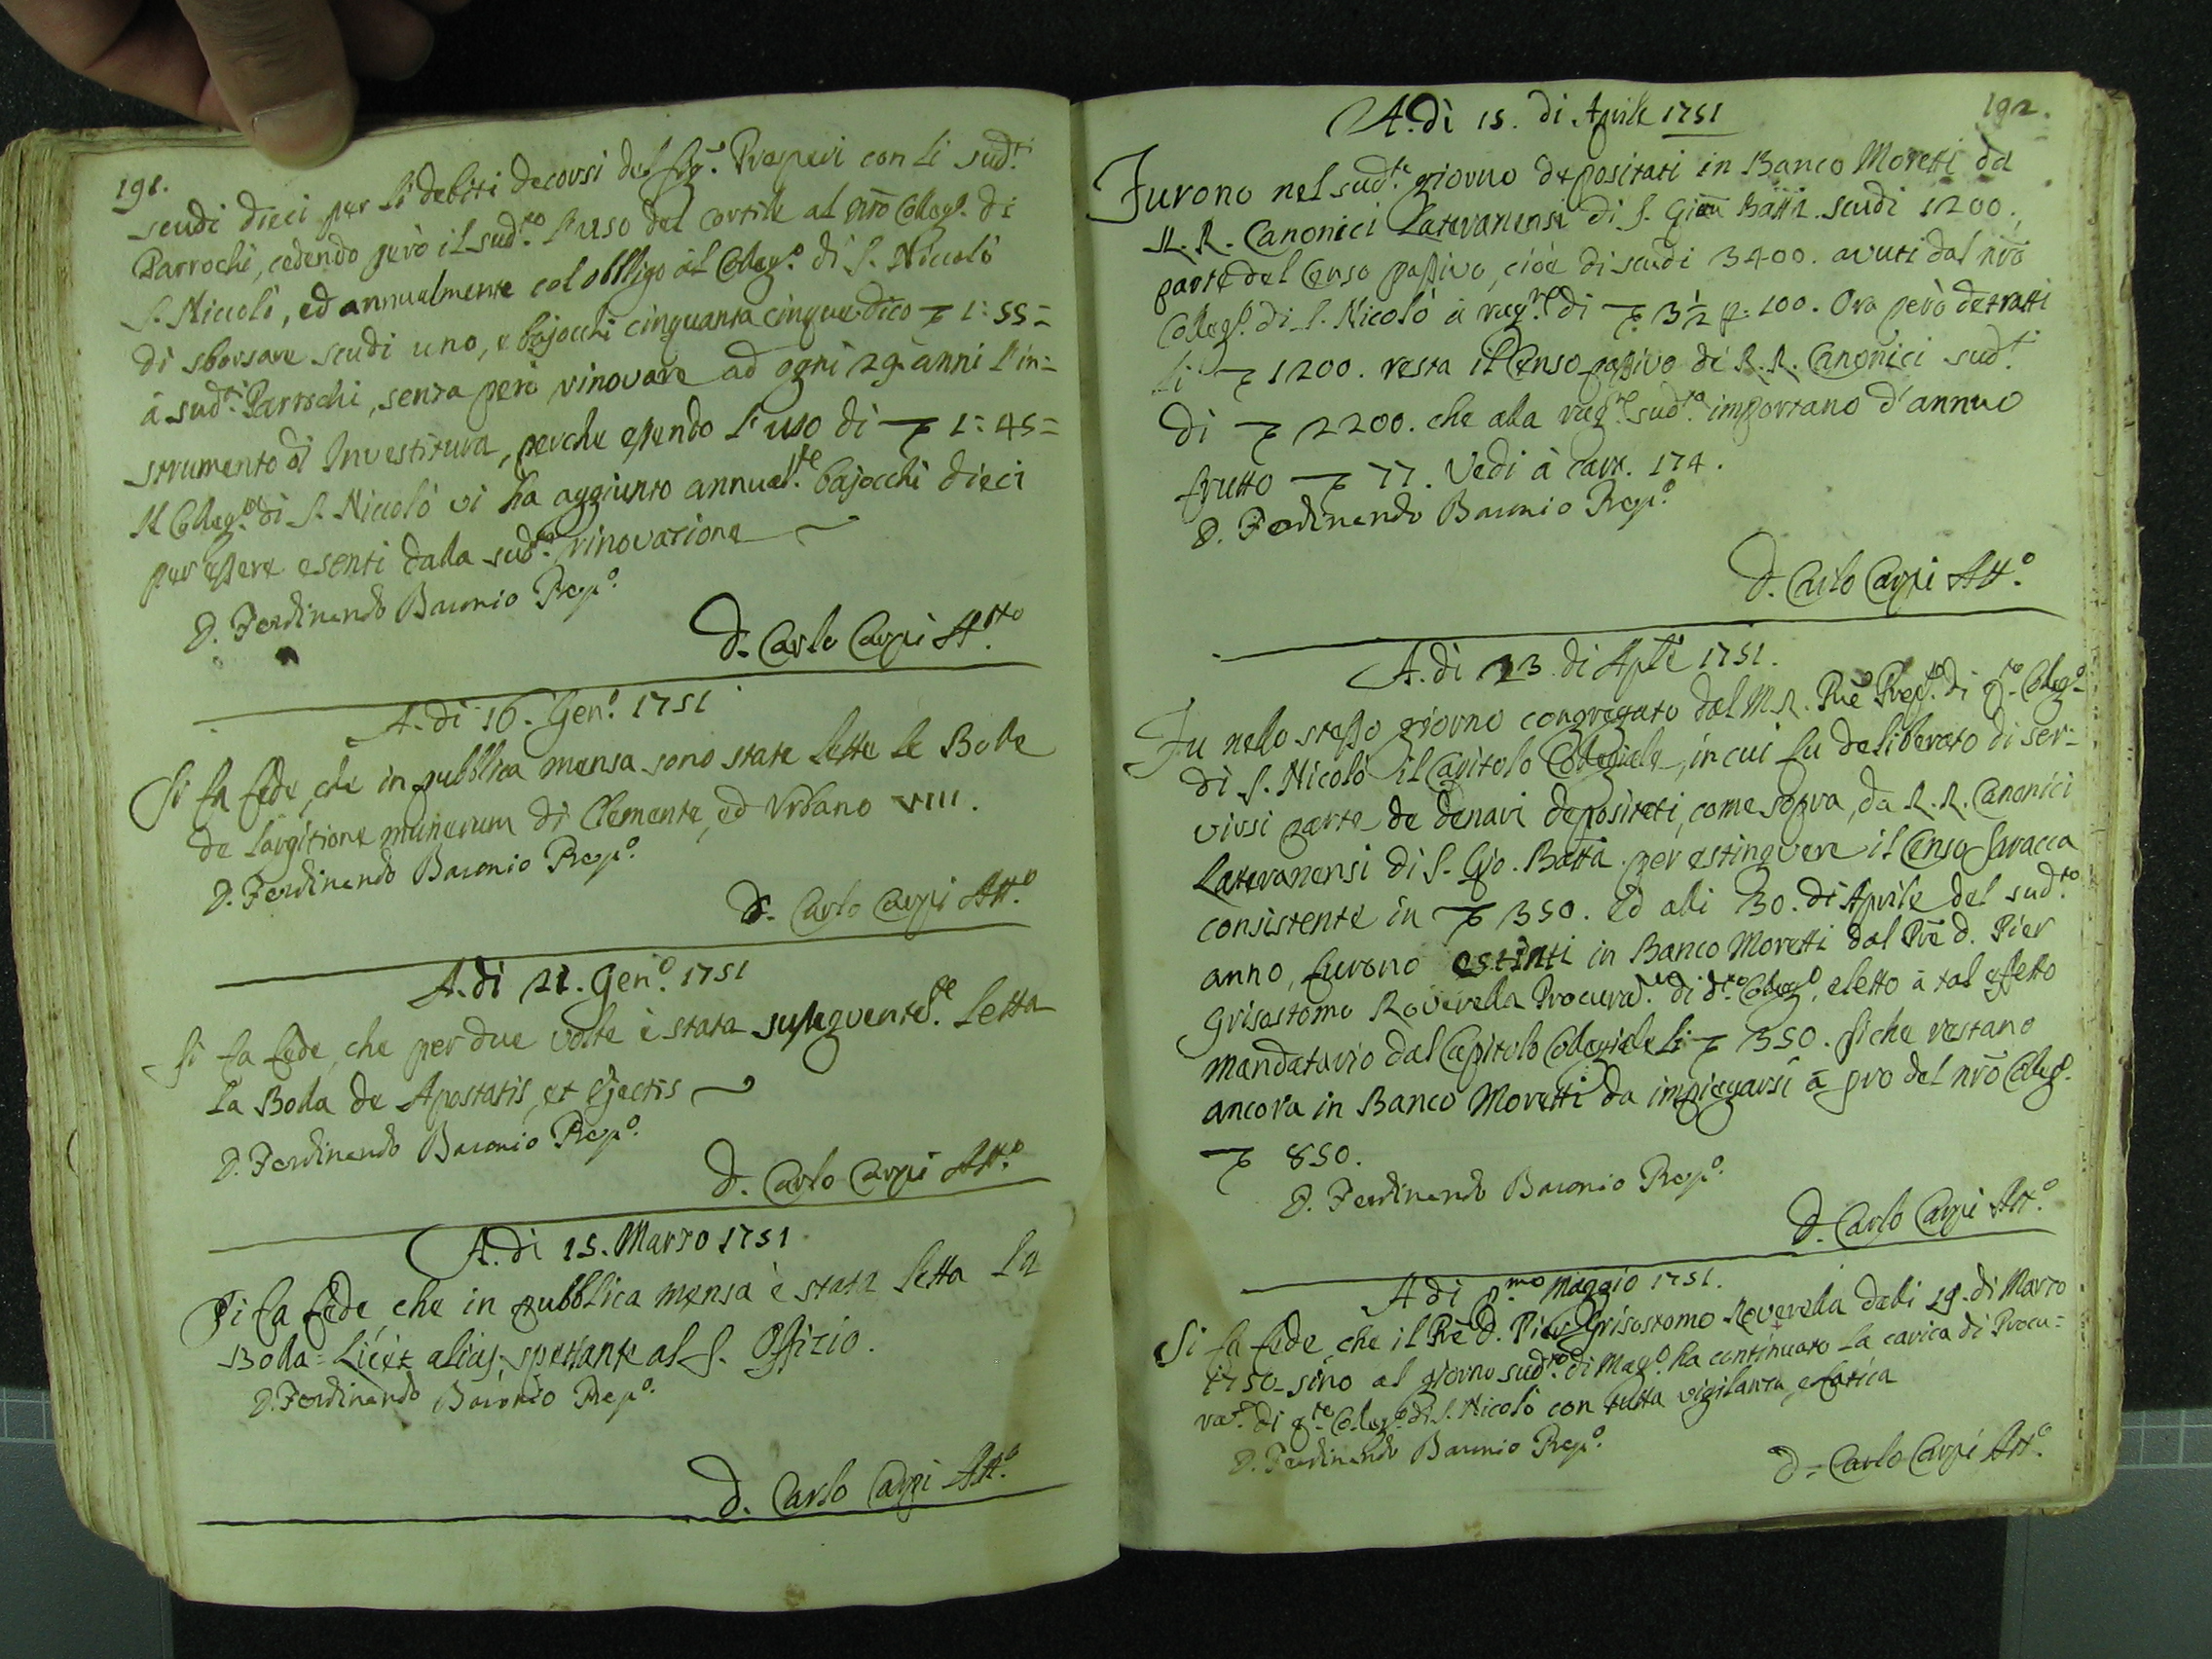 191.
scudi dieci per li debiti decorsi del Sig.r Prosperi con li sud.ti
Parrochi, cedendo però il sud.to l'uso del cortile al nrõ Colleg.o di
S. Niccolò, ed annualmente col obbligo al Colleg.o di S. Niccolò
di sborsare scudi uno, e bajocchi cinquanta cinque dico 1:55=
à sud.ti Parrochi, senza però rinovare ad ogni 29 anni l'in=
strumento d'Investitura, perche essendo l'uso di 1:45=
Il Colleg.o di S. Niccolò vi ha aggiunto annual.te bajocchi dieci
per essere esenti dalla sud.a rinovazione
D. Ferdinando Baronio Prep.o
D. Carlo Carpi Att.rio
A. di 16. Gen.o 1751
Si fa fede, che in pubblica mensa sono state lette le Bolle
de largitione munerum di Clemente, ed Urbano VIII.
D. Ferdinando Baronio Prep.o
D. Carlo Carpi Att.o
A. di 21. Gen.o 1751
Si fa fede, che per due volte è stata susseguente.te letta
la Bolla de Apostatis, et ejectis
D. Ferdinando Baronio Prep.o
D. Carlo Carpi Att.o
A. di 15. Marzo 1751
Si fa fede, che in pubblica mensa è stata letta la
Bolla = Licèt alias, spettante al S. Offizio.
D. Ferdinando Baronio Prep.o
D. Carlo Carpi Att.o
192.
A. di 15. di Aprile 1751
Furono nel sud.to giorno depositati in Banco Moretti da
R. R. Canonici Lateranensi di S. Gioã Battã scudi 1200.,
parte del Censo passivo, cioè di scudi 3400. avuti dal nrõ
Colleg.o di S. Nicolò à rag.ne di 3½ p. 100. Ora però detratti
li 1200. resta il Censo passivo di R. R. Canonici sud.ti
di 2200. che alla rag.ne sud.ta importano d'annuo
frutto 77. Vedi à Cart. 174.
D. Ferdinando Baronio Prep.o
D. Carlo Carpi Att.o
A. di 23 di Aplẽ 1751.
Fu nello stesso giorno congregato dal M. R. Prẽ Prep.to di q.to Colleg.o
di S. Nicolò il Capitolo Collegiale, in cui fu deliberato di ser=
virsi parte de denari depositati, come sopra, da R. R. Canonici
Lateranensi di S. Gio. Battã per estinguere il Censo
consistente in 350. Ed alli 30. di Aprile del sud.to
anno, furono estinti in Banco Moretti dal Prẽ D. Pier
Grisostomo Roverella Procurã.re di d.to Colleg.o, eletto à tal effetto
mandatario dal Capitolo Collegiale li 350. siche restano
ancora in Banco Moretti da impiegarsi à pro del nrõ Colleg.o
850.
D. Ferdinando Baronio Prep.o
D. Carlo Carpi Att.o
A di p.mo Maggio 1751.
Si fa fede, che il Prẽ D. Pier Grisostomo Roverella dalli 19. di Marzo
1750 sino al giorno sud.to di Mag.o ha continuato la carica di Procu=
rat.re di q.to Colleg.o di S. Nicolò con tutta vigilanza, e fatica
D. Ferdinando Baronio Prep.o
D. Carlo Carpi Att.o